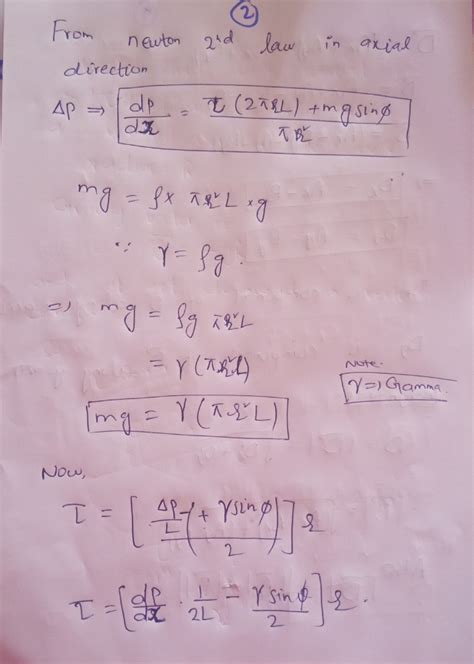 ②
From newton 2nd law in axial
direction
Δp ⇒ dp/dx = τ(2πrL) + mg sinϕ / πr²
mg = ρ × πr²L × g
∵ γ = ρg.
⇒ mg = ρg πr²L
= γ(πr²L)
Note.
γ ⇒ Gamma
mg = γ(πr²L)
Now,
τ = [ (Δp/L (+ γ sinϕ) / 2 ] r
τ = [ dp/dx · 1/2L − γ sinϕ/2 ] r.